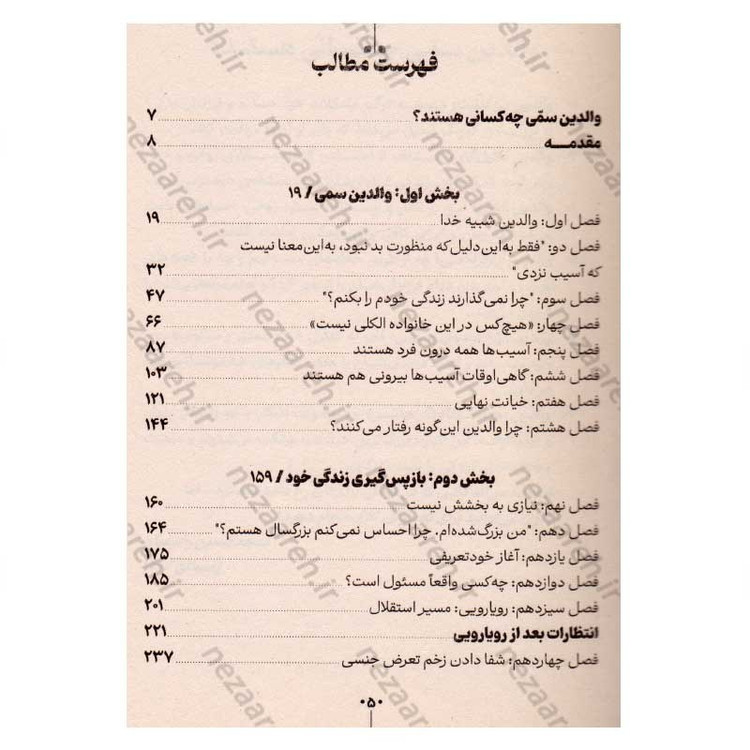 فهرست مطالب
والدین سمّی چه کسانی هستند؟ ۷
مقدمــــه ۸
بخش اول: والدین سمی / ۱۹
فصل اول: والدین شبیه خدا ۱۹
فصل دو: "فقط به‌این‌دلیل‌که منظورت بد نبود، به‌این‌معنا نیست
که آسیب نزدی" ۳۲
فصل سوم: "چرا نمی‌گذارند زندگی خودم را بکنم؟" ۴۷
فصل چهار: «هیچ‌کس در این خانواده الکلی نیست» ۶۶
فصل پنجم: آسیب‌ها همه درون فرد هستند ۸۷
فصل ششم: گاهی‌اوقات آسیب‌ها بیرونی هم هستند ۱۰۳
فصل هفتم: خیانت نهایی ۱۲۱
فصل هشتم: چرا والدین این‌گونه رفتار می‌کنند؟ ۱۴۴
بخش دوم: بازپس‌گیری زندگی خود / ۱۵۹
فصل نهم: نیازی به بخشش نیست ۱۶۰
فصل دهم: "من بزرگ‌شده‌ام. چرا احساس نمی‌کنم بزرگسال هستم؟" ۱۶۴
فصل یازدهم: آغاز خودتعریفی ۱۷۵
فصل دوازدهم: چه‌کسی واقعاً مسئول است؟ ۱۸۵
فصل سیزدهم: رویارویی: مسیر استقلال ۲۰۱
انتظارات بعد از رویارویی ۲۲۱
فصل چهاردهم: شفا دادن زخم تعرض جنسی ۲۳۷
۰۵۰
nezaareh.ir